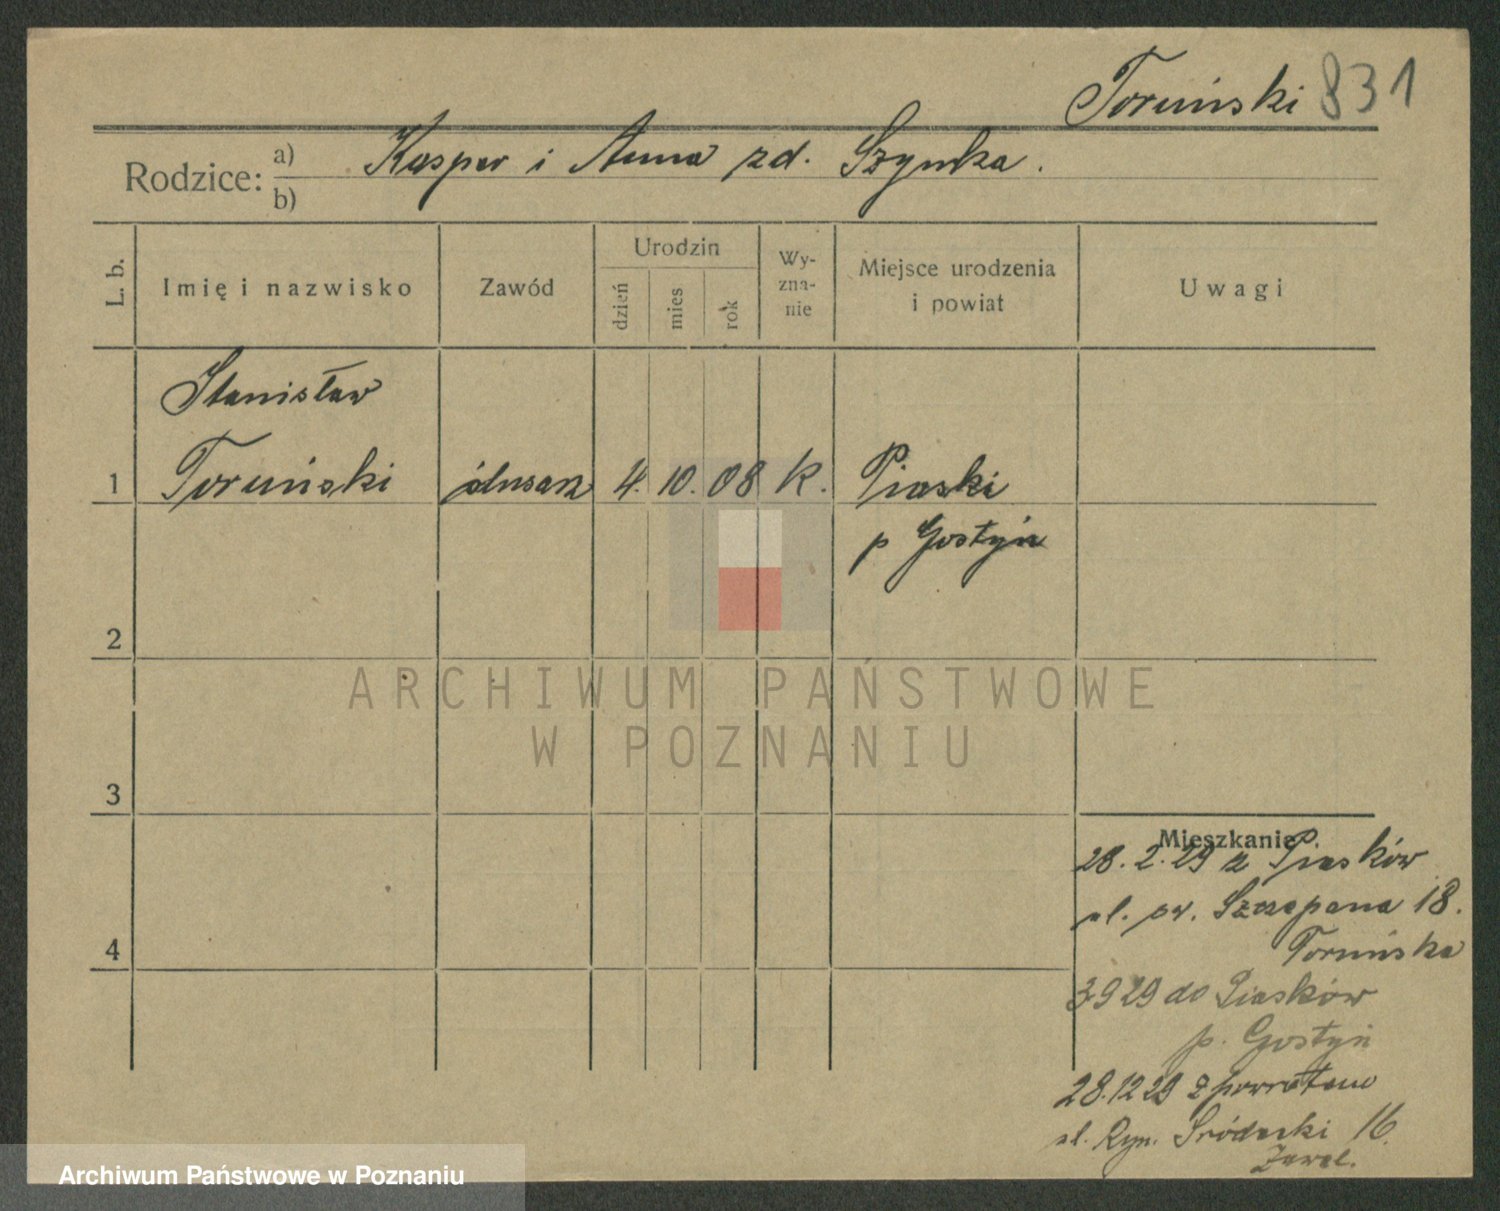 Toruński 831
Rodzice: a) Kasper i Anna zd. Szynka.
b)
L. b.
Imię i nazwisko
Zawód
Urodzin
dzień
mies
rok
Wy-
zna-
nie
Miejsce urodzenia
i powiat
Uwagi
Stanisław
1 Toruński ślusarz 4. 10. 08 K. Piaski
p Gostyń
2
ARCHIWUM PAŃSTWOWE
W POZNANIU
3
Mieszkanie:
28. 2. 29 z Piasków
ul. św. Szczepana 18.
4 Toruńska
3 9 29 do Piasków
p. Gostyń
28.12 29 z powrotem
ul. Ryn. Śródecki 16.
Archiwum Państwowe w Poznaniu